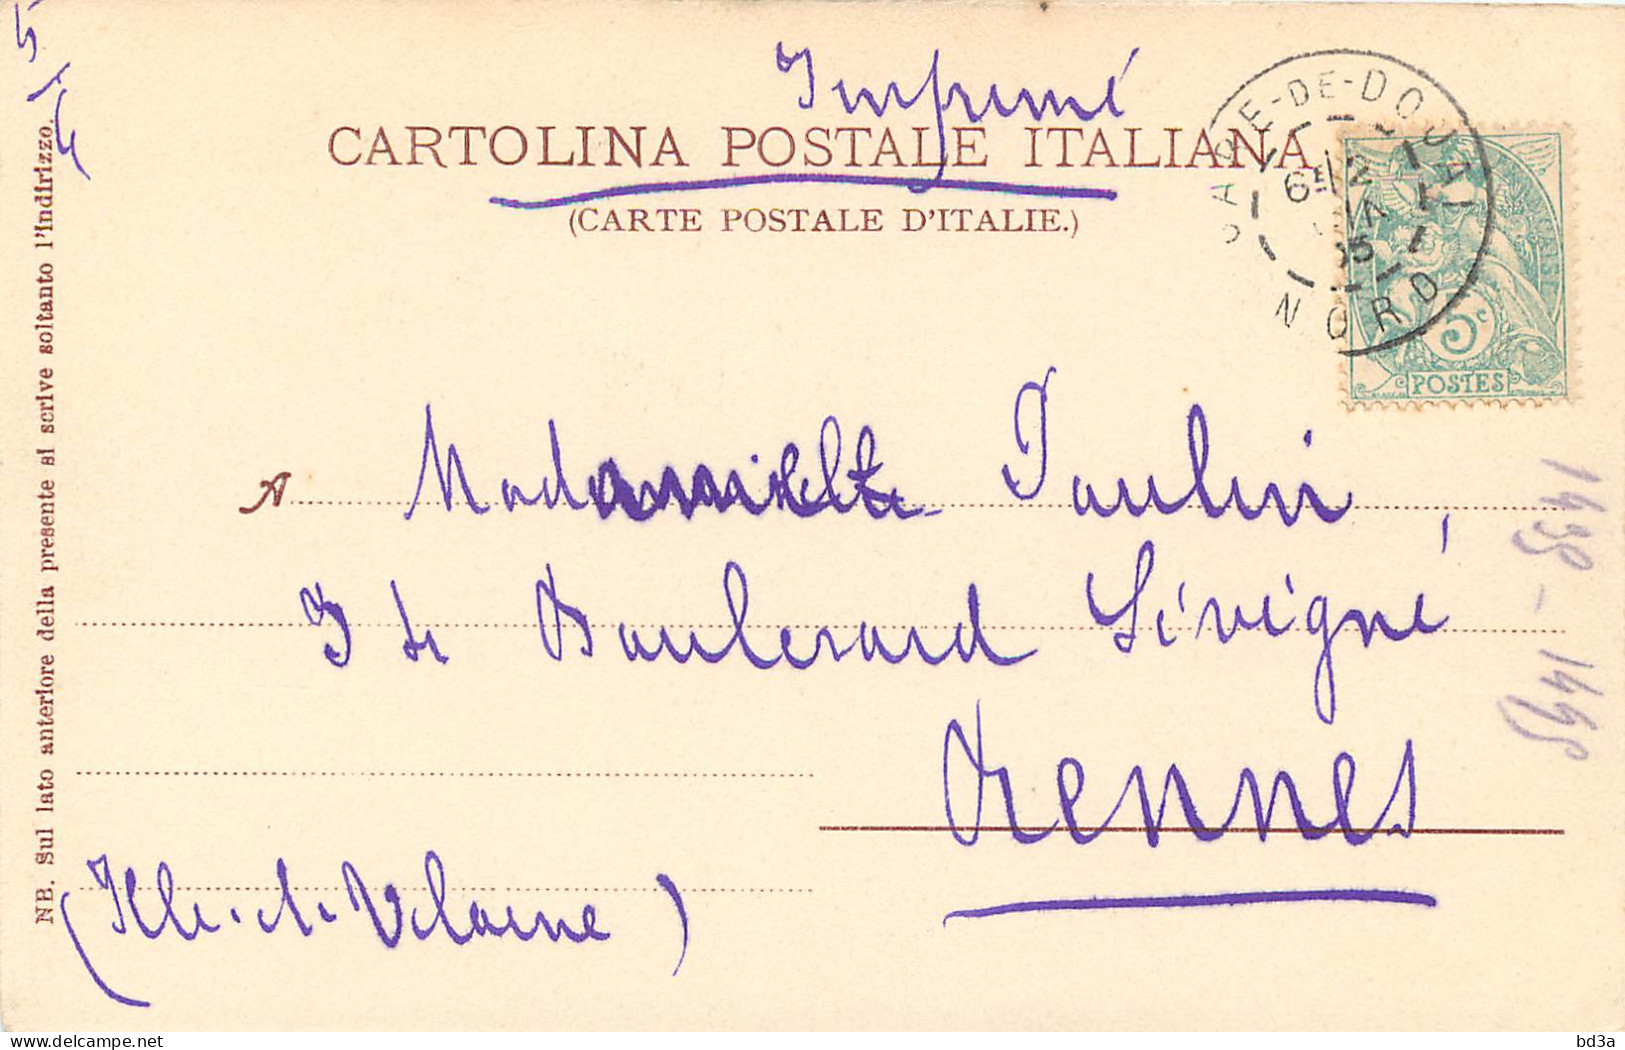 5
4
Imprimé
CARTOLINA POSTALE ITALIANA
(CARTE POSTALE D'ITALIE.)
GARE-DE-DOUAI
6E 12
05
NORD
5c
POSTES
A Mademoiselle Paulin,
Boulevard Sévigné
Rennes
(Ille-de-Vilaine)
NB. Sul lato anteriore della presente si scrive soltanto l'indirizzo.
delcampe.net
bd3a